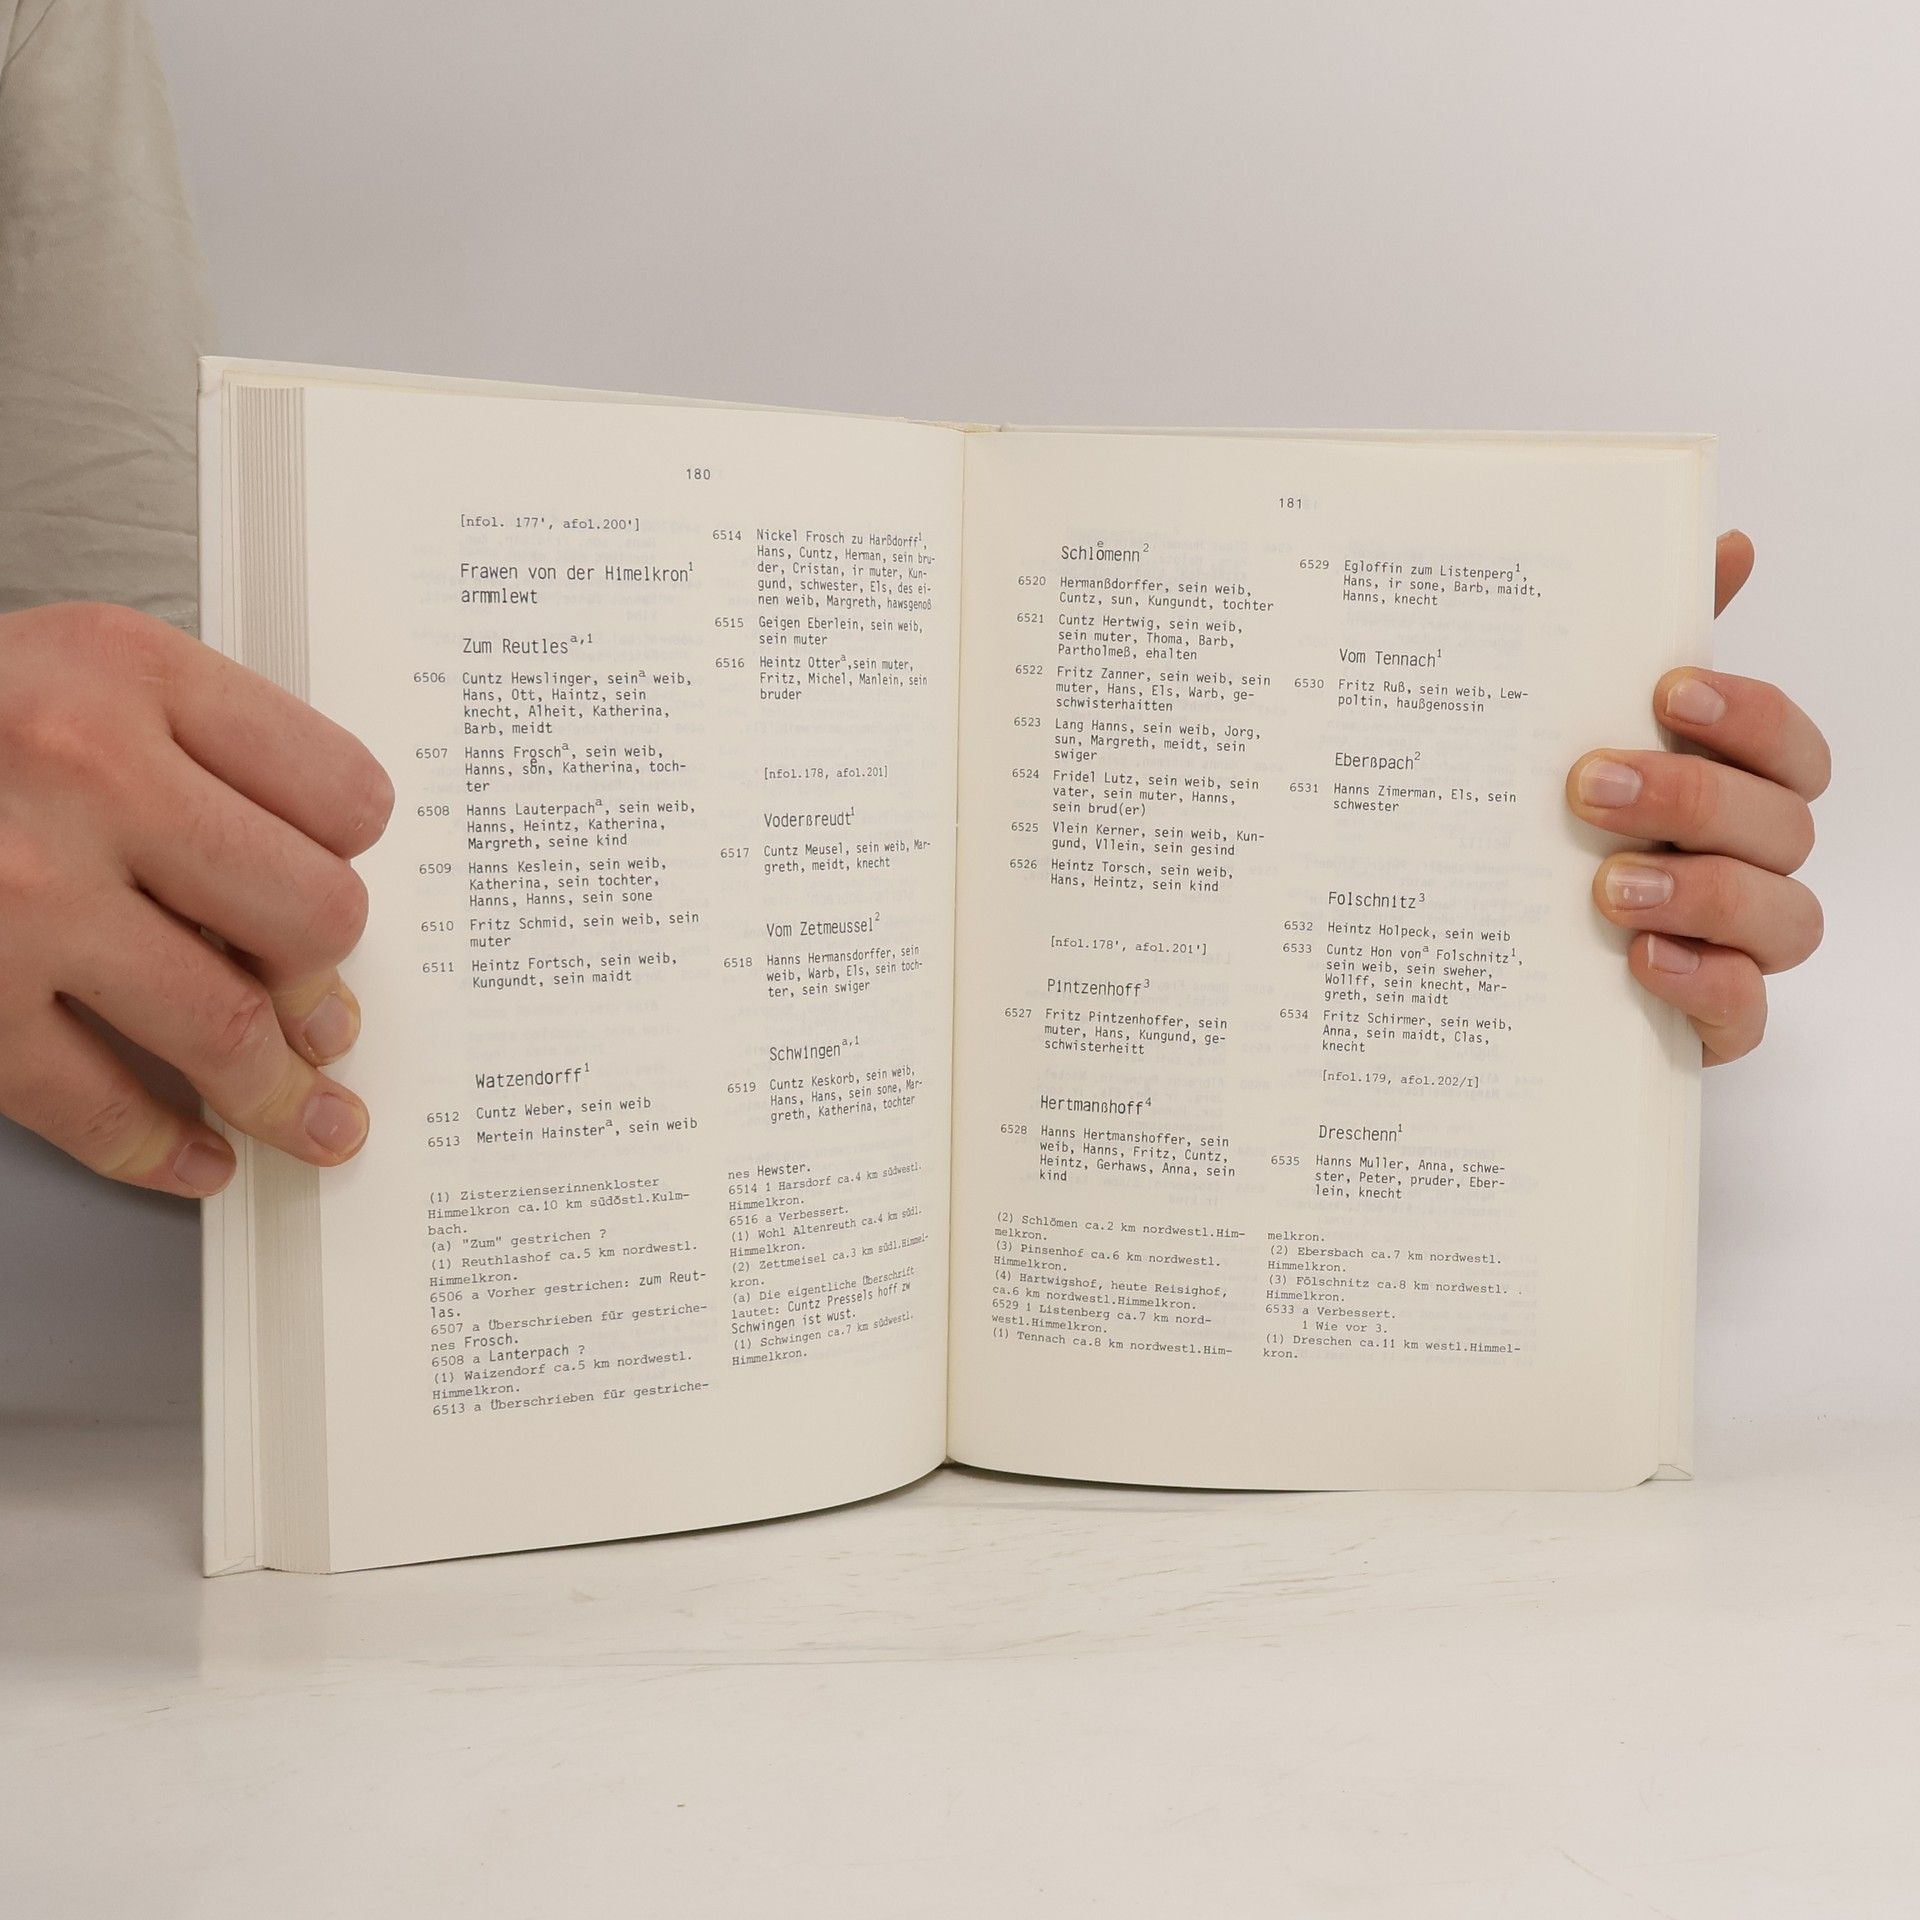 180
[nfol. 177', afol.200']
Frawen von der Himelkron¹
armmlewt
Zum Reutlesᵃ,¹
6506 Cuntz Hewslinger, seinᵃ weib,
Hans, Ott, Haintz, sein
knecht, Alheit, Katherina,
Barb, meidt
6507 Hanns Froschᵃ, sein weib,
Hanns, soͤn, Katherina, toch-
ter
6508 Hanns Lauterpachᵃ, sein weib,
Hanns, Heintz, Katherina,
Margreth, seine kind
6509 Hanns Keslein, sein weib,
Katherina, sein tochter,
Hanns, Hanns, sein sone
6510 Fritz Schmid, sein weib, sein
muter
6511 Heintz Fortsch, sein weib,
Kungundt, sein maidt
Watzendorff¹
6512 Cuntz Weber, sein weib
6513 Mertein Hainsterᵃ, sein weib
(1) Zisterzienserinnenkloster
Himmelkron ca.10 km südöstl.Kulm-
bach.
(a) "Zum" gestrichen ?
(1) Reuthlashof ca.5 km nordwestl.
Himmelkron.
6506 a Vorher gestrichen: zum Reut-
las.
6507 a Überschrieben für gestriche-
nes Frosch.
6508 a Lanterpach ?
(1) Waizendorf ca.5 km nordwestl.
Himmelkron.
6513 a Überschrieben für gestriche-
6514 Nickel Frosch zu Harßdorff¹,
Hans, Cuntz, Herman, sein bru-
der, Cristan, ir muter, Kun-
gund, schwester, Els, des ei-
nen weib, Margreth, hawsgenoß
6515 Geigen Eberlein, sein weib,
sein muter
6516 Heintz Otterᵃ,sein muter,
Fritz, Michel, Manlein, sein
bruder
[nfol.178, afol.201]
Voderßreudt¹
6517 Cuntz Meusel, sein weib, Mar-
greth, meidt, knecht
Vom Zetmeussel²
6518 Hanns Hermansdorffer, sein
weib, Warb, Els, sein toch-
ter, sein swiger
Schwingenᵃ,¹
6519 Cuntz Keskorb, sein weib,
Hans, Hans, sein sone, Mar-
greth, Katherina, tochter
nes Hewster.
6514 1 Harsdorf ca.4 km südwestl.
Himmelkron.
6516 a Verbessert.
(1) Wohl Altenreuth ca.4 km südl.
Himmelkron.
(2) Zettmeisel ca.3 km südl.Himmel-
kron.
(a) Die eigentliche Überschrift
lautet: Cuntz Pressels hoff zw
Schwingen ist wust.
(1) Schwingen ca.7 km südwestl.
Himmelkron.
181
Schloͤmenn²
6520 Hermanßdorffer, sein weib,
Cuntz, sun, Kungundt, tochter
6521 Cuntz Hertwig, sein weib,
sein muter, Thoma, Barb,
Partholmeß, ehalten
6522 Fritz Zanner, sein weib, sein
muter, Hans, Els, Warb, ge-
schwisterhaitten
6523 Lang Hanns, sein weib, Jorg,
sun, Margreth, meidt, sein
swiger
6524 Fridel Lutz, sein weib, sein
vater, sein muter, Hanns,
sein brud(er)
6525 Vlein Kerner, sein weib, Kun-
gund, Vllein, sein gesind
6526 Heintz Torsch, sein weib,
Hans, Heintz, sein kind
[nfol.178', afol.201']
Pintzenhoff³
6527 Fritz Pintzenhoffer, sein
muter, Hans, Kungund, ge-
schwisterheitt
Hertmanßhoff⁴
6528 Hanns Hertmanshoffer, sein
weib, Hanns, Fritz, Cuntz,
Heintz, Gerhaws, Anna, sein
kind
(2) Schlömen ca.2 km nordwestl.Him-
melkron.
(3) Pinsenhof ca.6 km nordwestl.
Himmelkron.
(4) Hartwigshof, heute Reisighof,
ca.6 km nordwestl.Himmelkron.
6529 1 Listenberg ca.7 km nord-
westl.Himmelkron.
(1) Tennach ca.8 km nordwestl.Him-
6529 Egloffin zum Listenperg¹,
Hans, ir sone, Barb, maidt,
Hanns, knecht
Vom Tennach¹
6530 Fritz Ruß, sein weib, Lew-
poltin, haußgenossin
Eberßpach²
6531 Hanns Zimerman, Els, sein
schwester
Folschnitz³
6532 Heintz Holpeck, sein weib
6533 Cuntz Hon vonᵃ Folschnitz¹,
sein weib, sein sweher,
Wollff, sein knecht, Mar-
greth, sein maidt
6534 Fritz Schirmer, sein weib,
Anna, sein maidt, Clas,
knecht
[nfol.179, afol.202/I]
Dreschenn¹
6535 Hanns Muller, Anna, schwe-
ster, Peter, pruder, Eber-
lein, knecht
melkron.
(2) Ebersbach ca.7 km nordwestl.
Himmelkron.
(3) Fölschnitz ca.8 km nordwestl.
Himmelkron.
6533 a Verbessert.
1 Wie vor 3.
(1) Dreschen ca.11 km westl.Himmel-
kron.